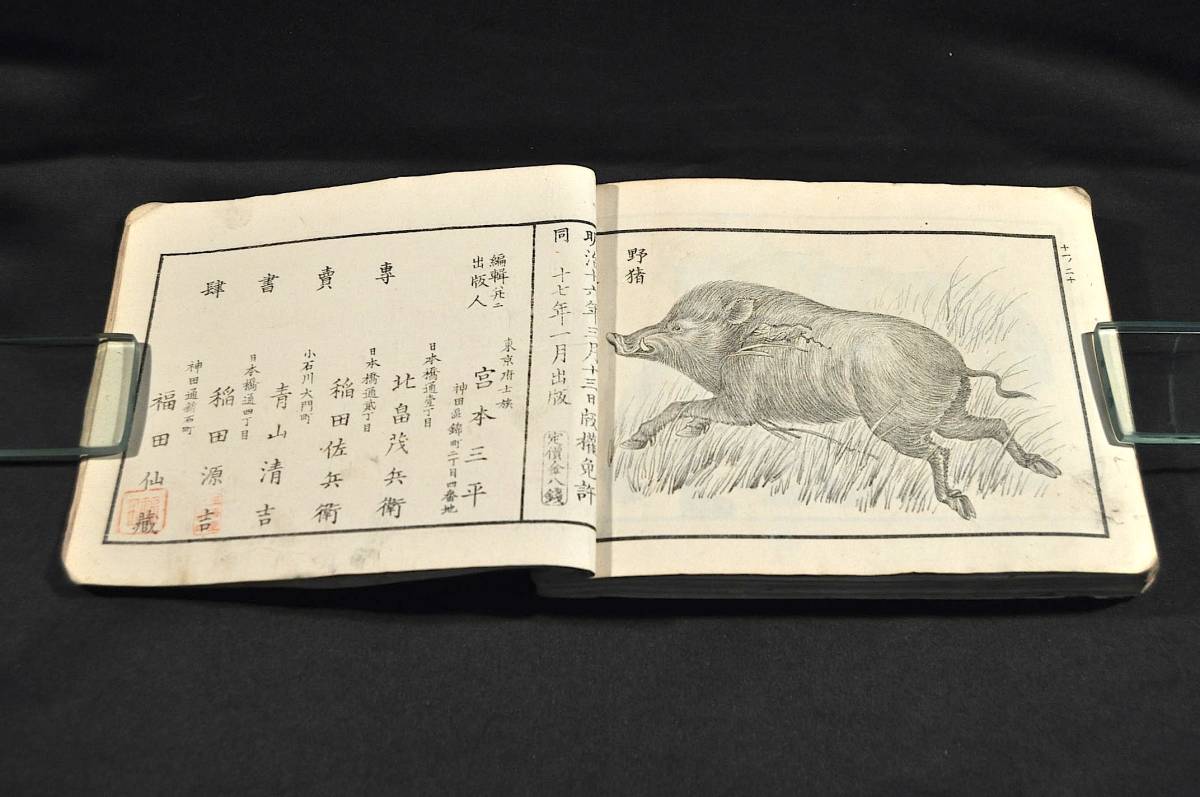 十ノ二十
野猪
明治十六年三月十三日版權免許
同 十七年一月出版
定價金八錢
編輯并ニ
出版人
東京府士族
宮本三平
神田區錦町二丁目四番地
專賣書肆
日本橋通壹丁目
北畠茂兵衛
日本橋通貳丁目
稲田佐兵衛
小石川大門町
青山清吉
日本橋通四丁目
稲田源吉
神田通新石町
福田仙藏